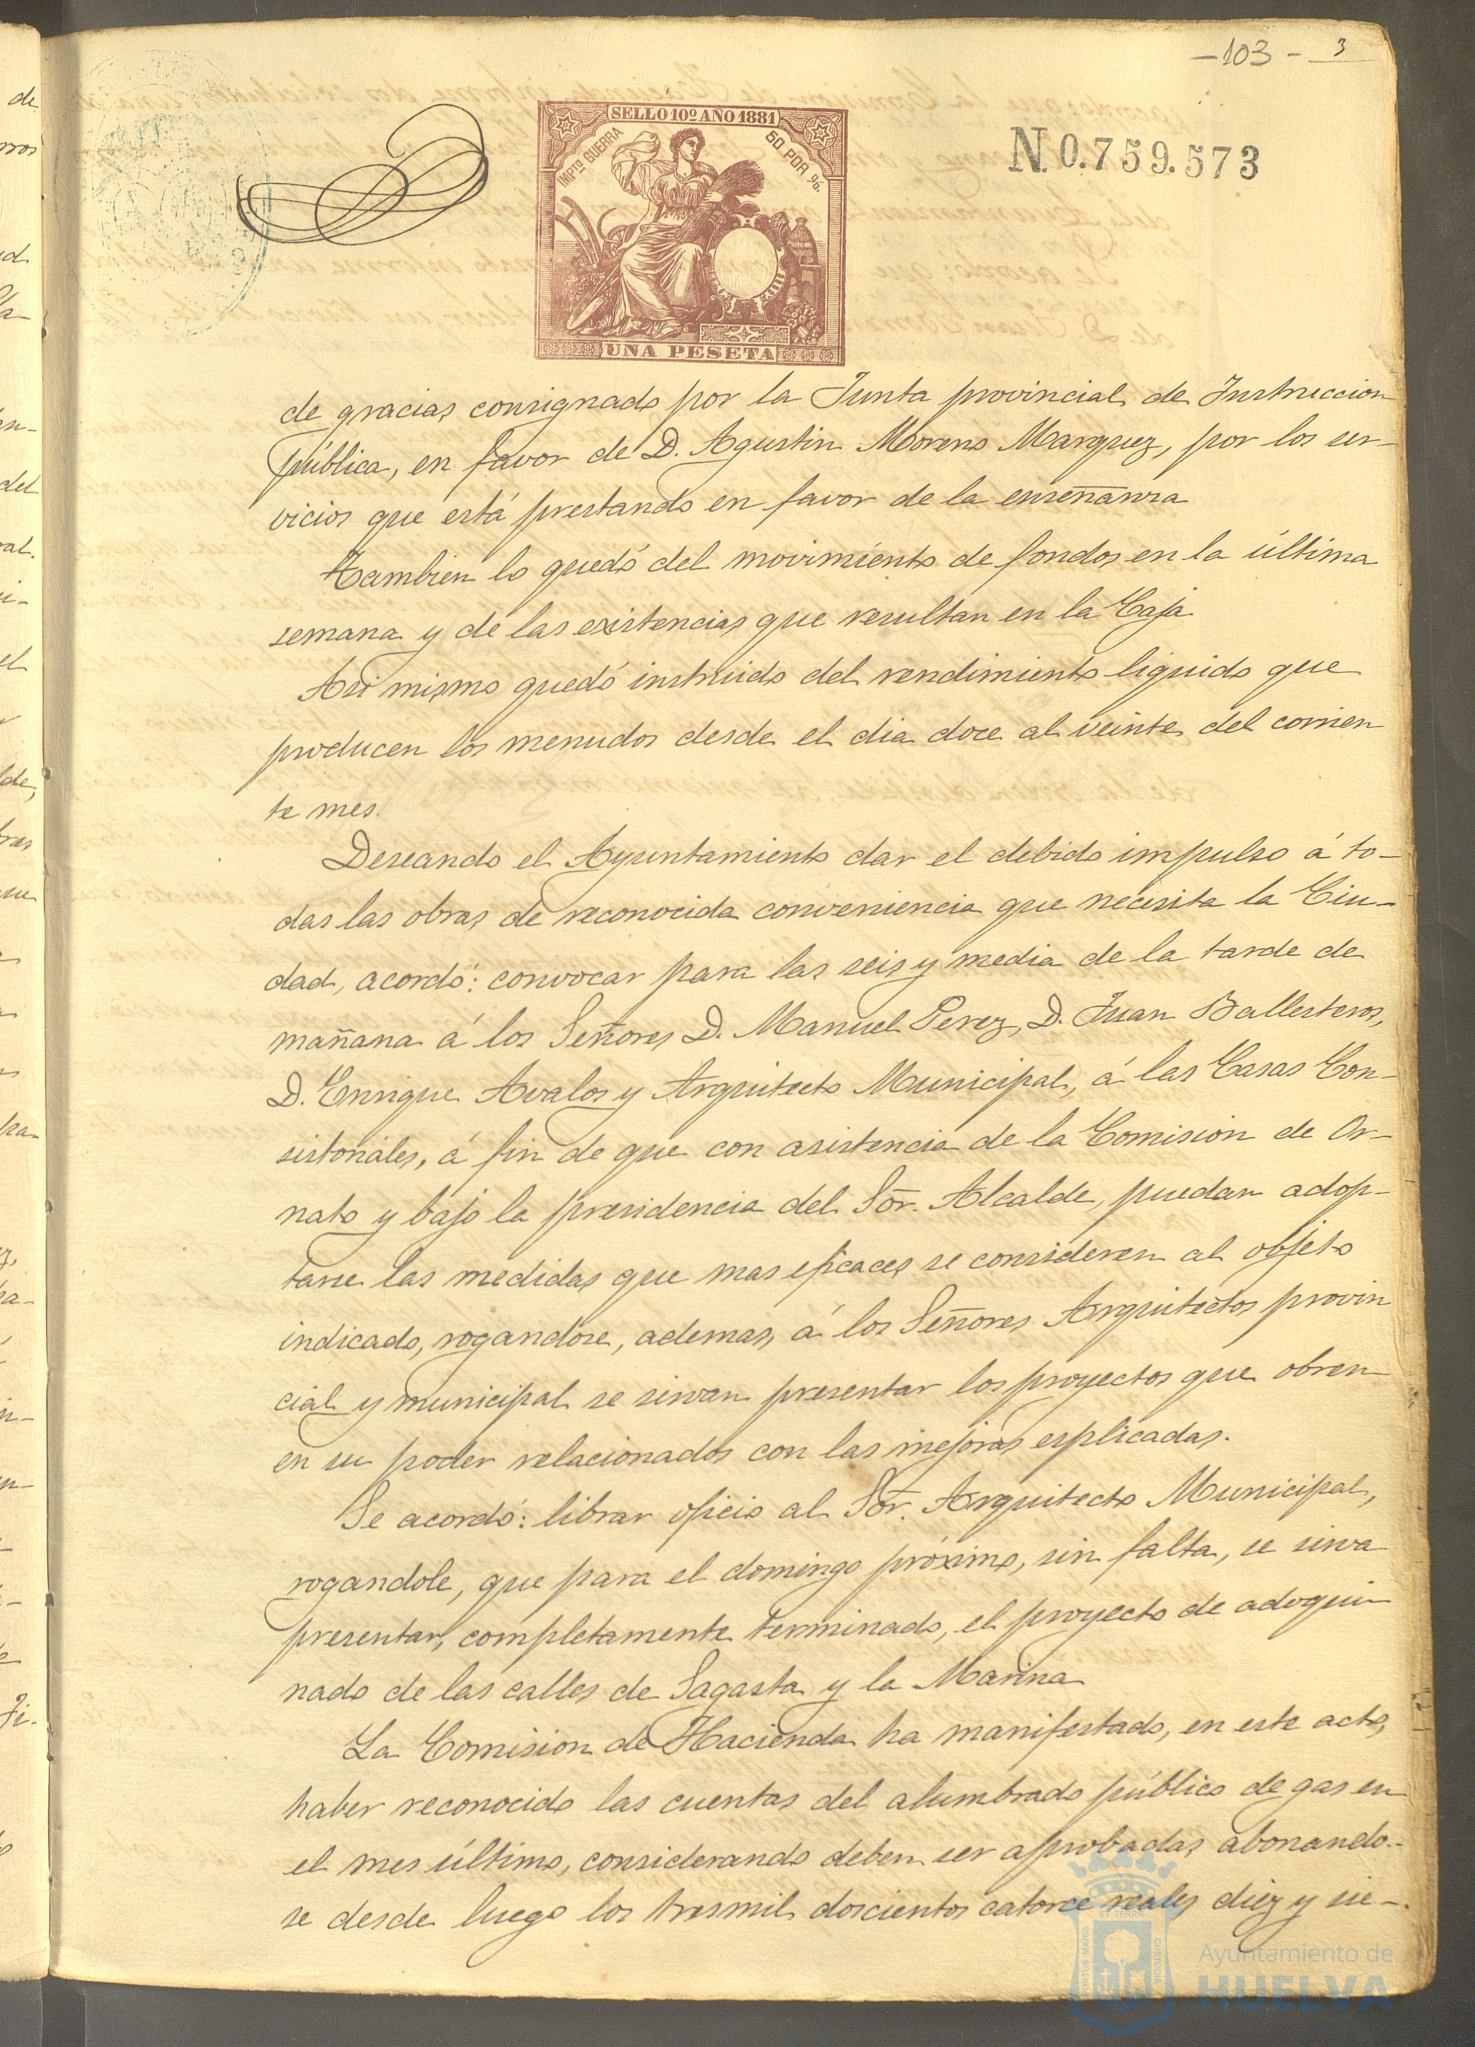 -103- 3
SELLO 10º AÑO 1881
IMPTO GUERRA
60 POR %
N. 0.759.573
UNA PESETA
de gracias, consignado por la Junta provincial de Instruccion
pública, en favor de D. Agustin Moreno Marquez, por los ser-
vicios que está prestando en favor de la enseñanza
Tambien lo quedó del movimiento de fondos en la última
semana y de las existencias que resultan en la Caja
Asi mismo quedó instruido del rendimiento liquido que
producen los menudos desde el dia doce al veinte del corrien
te mes.
Deseando el Ayuntamiento dar el debido impulso á to-
das las obras de reconocida conveniencia que necesita la Ciu-
dad, acordó: convocar para las seis y media de la tarde de
mañana á los Señores D. Manuel Perez, D. Juan Ballesteros,
D. Enrique Avalos y Arquitecto Municipal, á las Casas Con-
sistoriales, á fin de que con asistencia de la Comision de Or-
nato y bajo la presidencia del Sor. Alcalde, puedan adop-
tarse las medidas que mas eficaces se consideren al objeto
indicado, rogandose, ademas, á los Señores Arquitectos provin
cial y municipal se sirvan presentar los proyectos que obren
en su poder relacionados con las mejoras esplicadas.
Se acordó: librar oficio al Sor. Arquitecto Municipal,
rogandole, que para el domingo próximo, sin falta, se sirva
presentar, completamente terminado, el proyecto de adoqui
nado de las calles de Sagasta y la Marina
La Comision de Hacienda ha manifestado, en este acto,
haber reconocido las cuentas del alumbrado público de gas en
el mes último, considerando deben ser aprobadas, abonando-
se desde luego los tresmil doscientos catorce reales diez y sie-
Ayuntamiento de
HUELVA